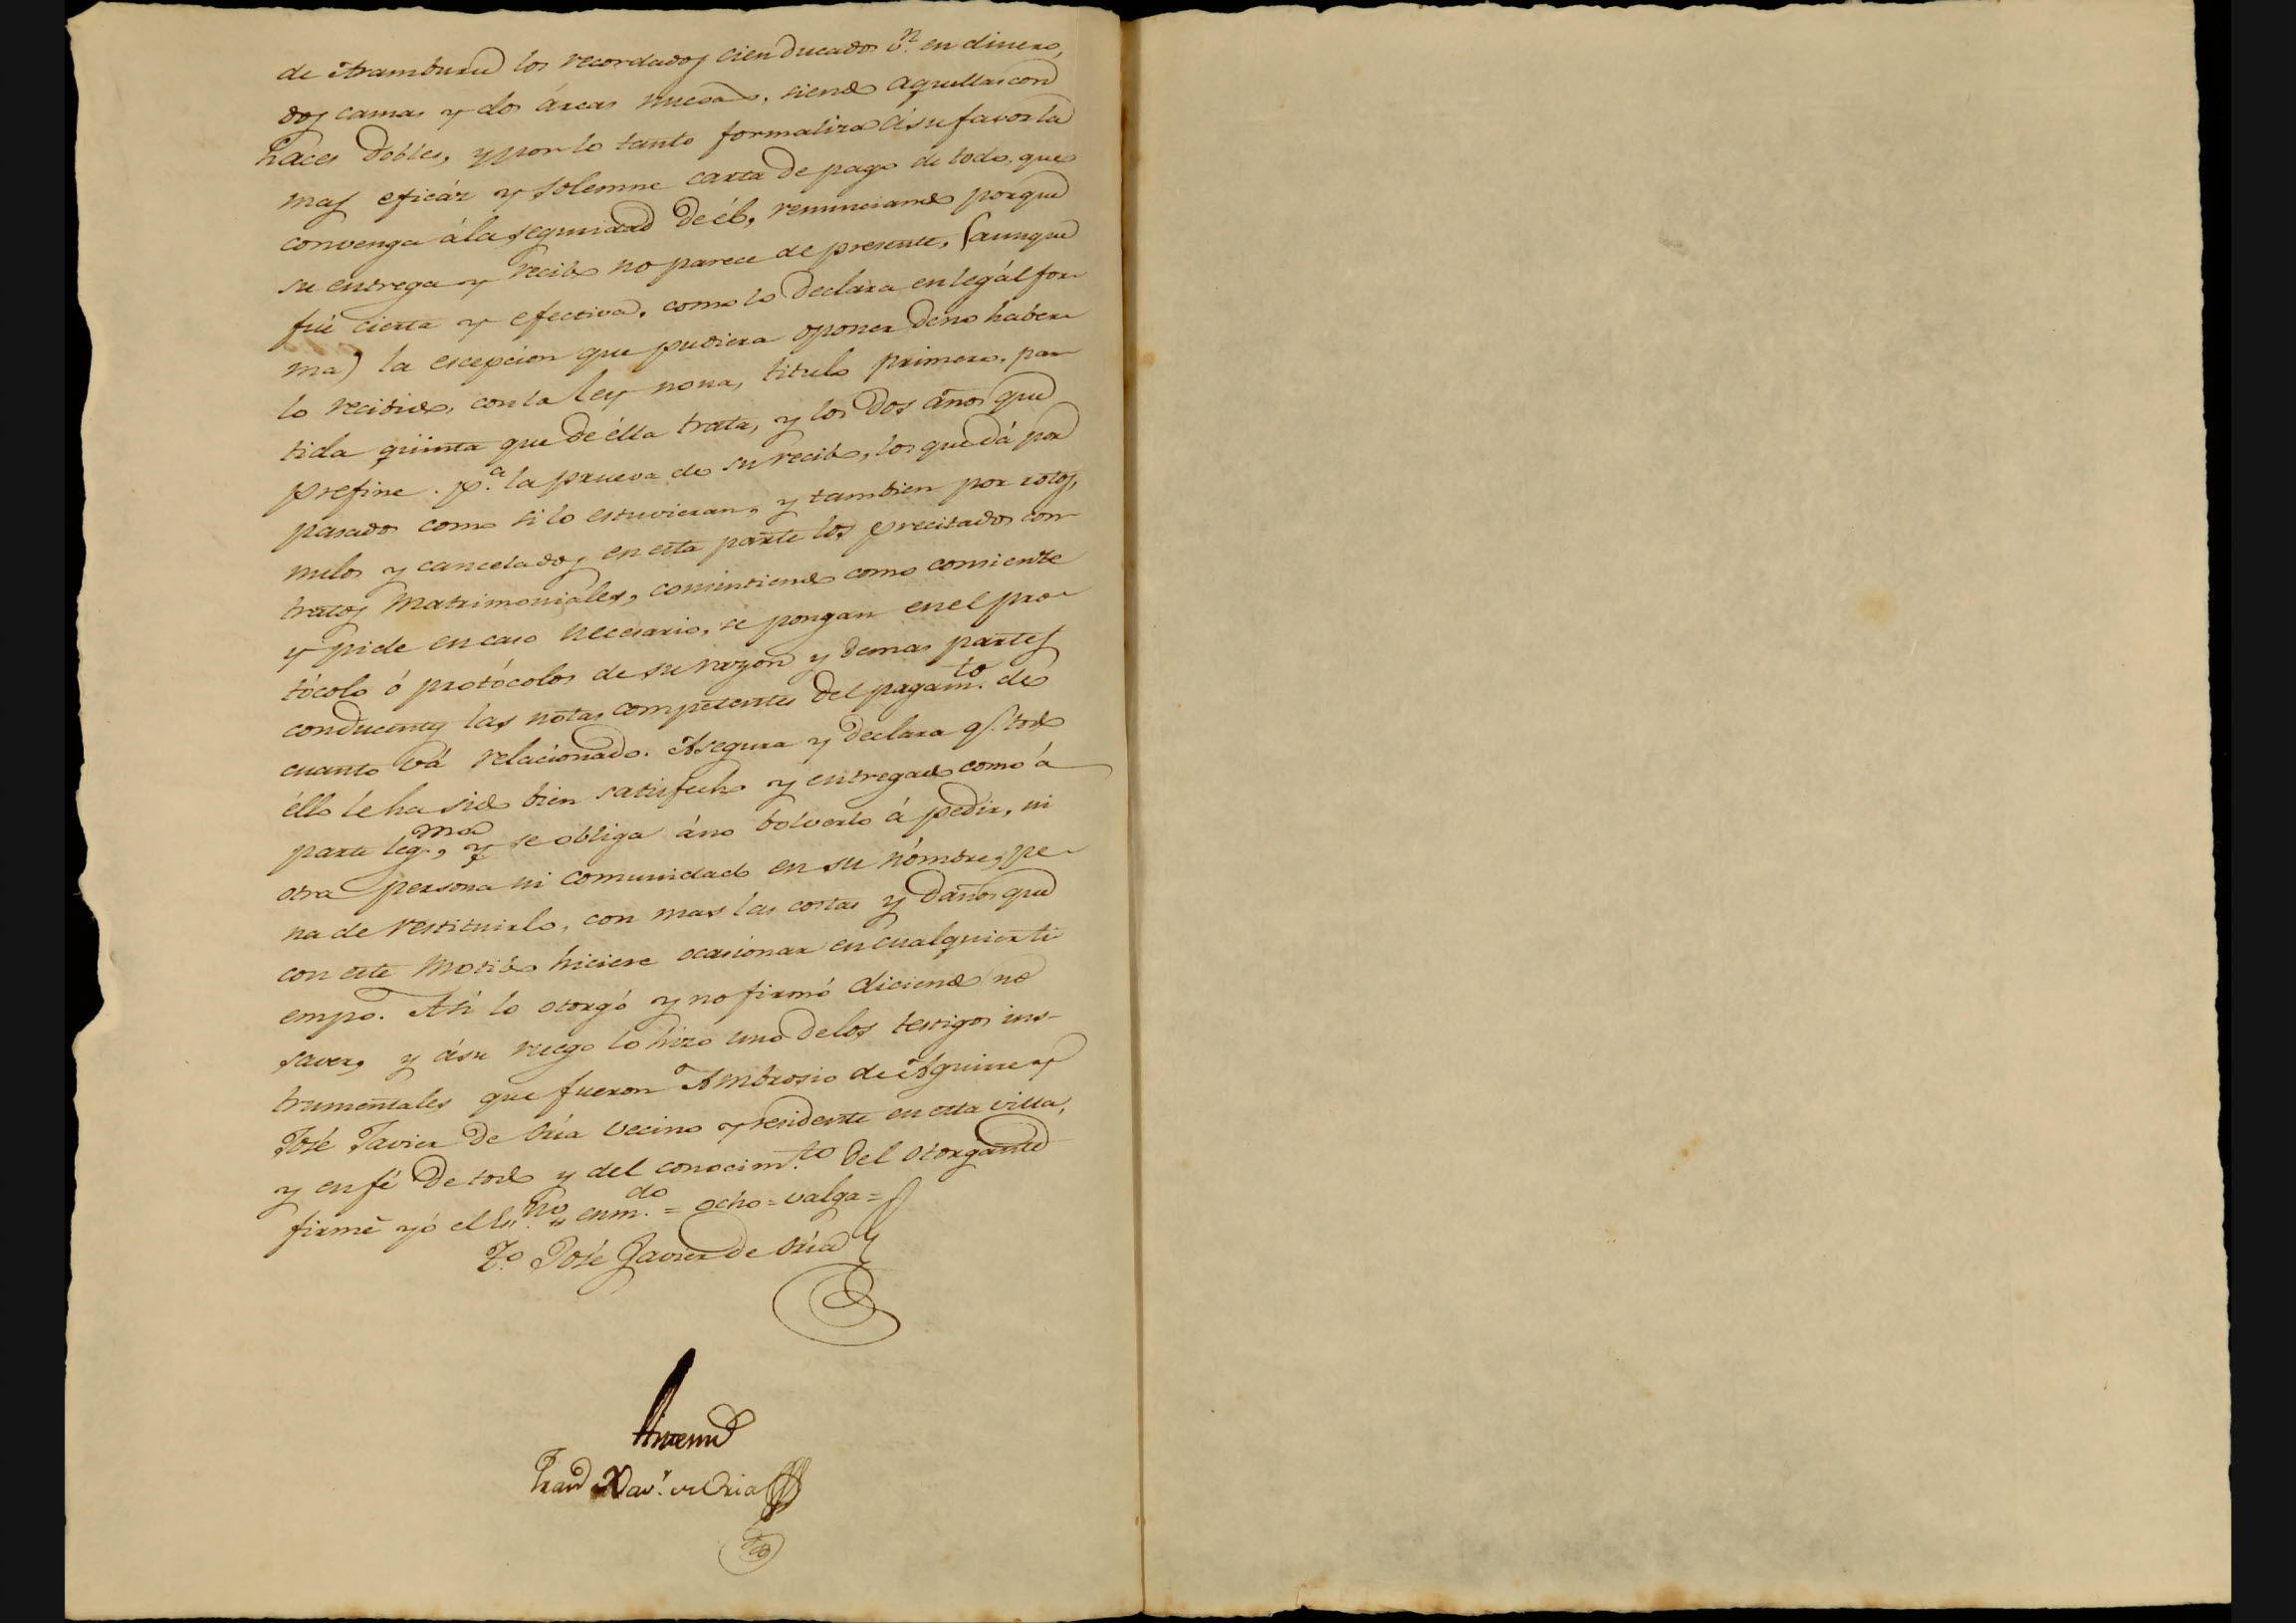 de Aramburu los recordados cien ducados v.n en dinero,
dos camas y dos árcas nuevas, siendo aquellas con
haces dobles, y por lo tanto formaliza á su favor la
mas eficáz y solemne carta de pago de todo, que
convenga á la seguridad de él, renunciando porque
su entrega y recibo no parece de presente, (aunque
fué cierta y efectiva, como lo declara en legál for-
ma) la escepcion que pudiera oponer de no haber-
lo recibido, con la ley nona, titulo primero, par-
tida quinta que de élla trata, y los dos años que
prefine p.a la prueva de su recibo, los que dá por
pasados como si lo estuvieran, y tambien por rotos,
nulos y cancelados en esta parte los precitados con-
tratos Matrimoniáles, consintiendo como consiente
y pide en caso necesario, se pongan en el pro-
tócolo ó protócolos de su razon y demas partes
conducentes las notas competentes del pagam.to de
cuanto vá relacionado. Asegura y declara q.e todo
éllo le ha sido bien satisfecho y entregado como á
parte leg.ma, y se obliga á no bolverlo á pedir, ni
otra persona ni comunidad en su nómbre, pe-
na de restituirlo, con mas las costas y daños que
con este motibo hiciere ocasionar en cualquier ti-
empo. Asi lo otorgó y no firmó diciendo no
saver, y á su ruego lo hizo uno de los testigos ins-
trumentales que fueron Ambrosio de Aguirre y
José Javier de Oria vecino y residente en esta villa,
y en fé de todo y del conocim.to del otorgante
firmé yó el Es.no = enm.do = ocho = valga =
T.o José Javier de Oria
Ante mi
Fran.co Xav.r de Oria